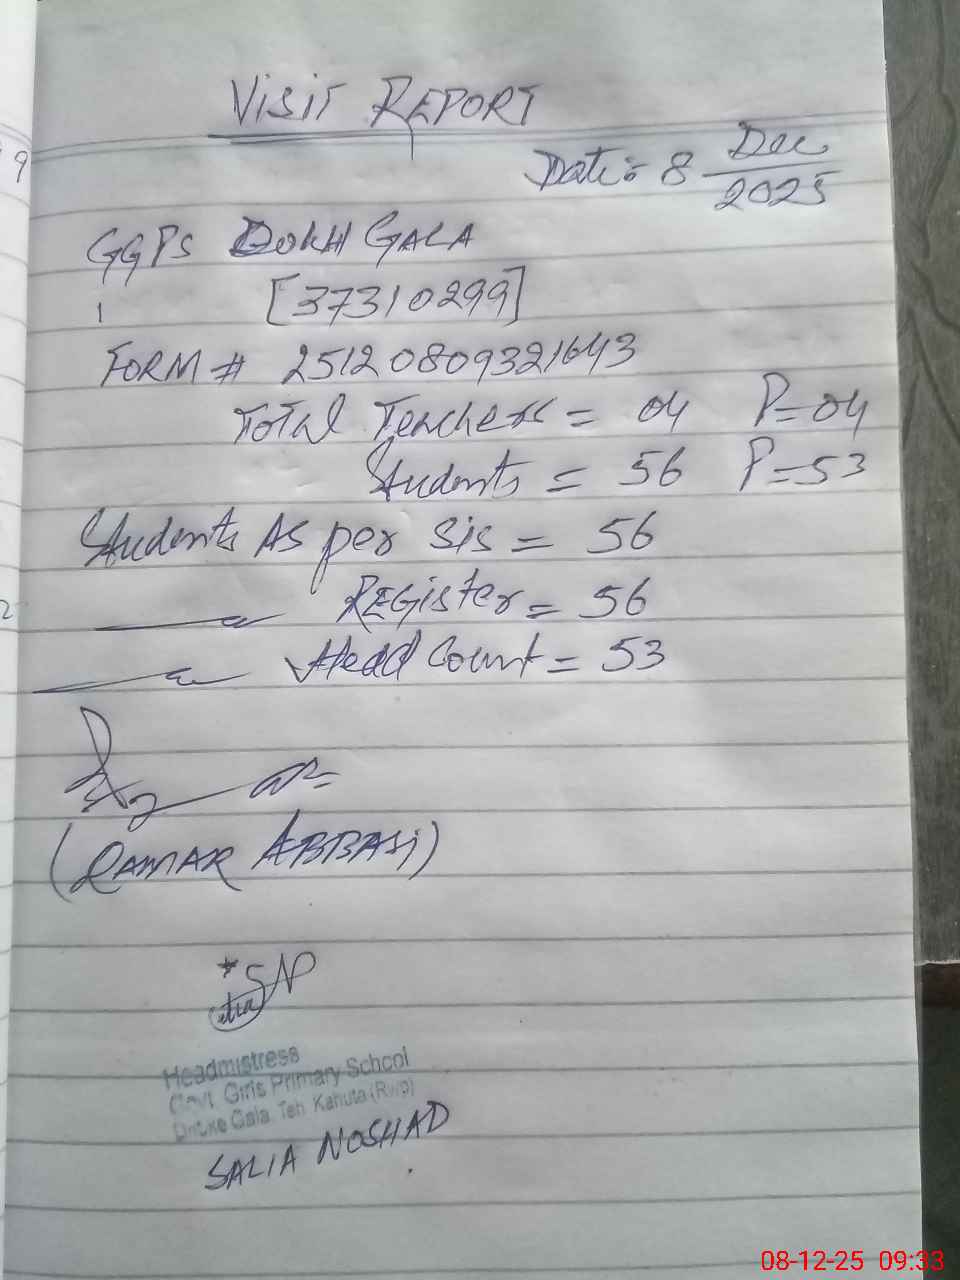 VISIT REPORT
Date: 8 Dec
2025
GGPS DOKH GALA
[37310299]
FORM # 25120809321643
Total Teachers = 04 P=04
Students = 56 P=53
Students As per SIS = 56
REGister = 56
Head Count = 53
(QAMAR ABBASi)
Headmistress
Govt Girls Primary School
Gala Teh Kahuta (Rwp)
SALIA NOSHAD
08-12-25 09:33